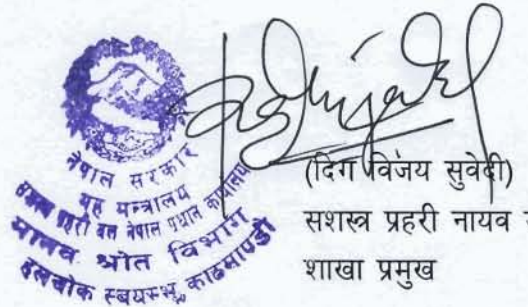 नेपाल सरकार
गृह मन्त्रालय
सशस्त्र प्रहरी बल नेपाल प्रधान कार्यालय
मानव श्रोत विभाग
हलचोक स्वयम्भू, काठमाण्डौ
(दिग विजय सुवेदी)
सशस्त्र प्रहरी नायव
शाखा प्रमुख